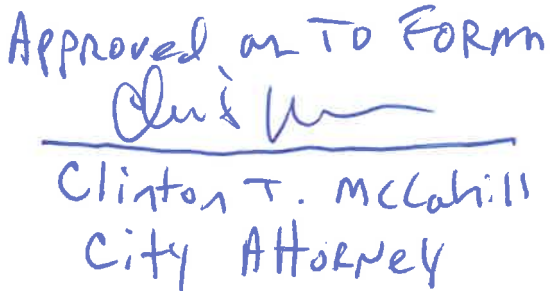 Approved as TO FORM
Clinton T. McCahill
City Attorney